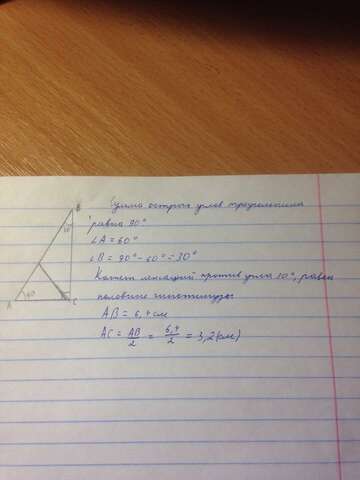 B
30°
A
60°
C
Сумма острых углов треугольника
равна 90°
∠A = 60°
∠B = 90° - 60° = 30°
Катет лежащий против угла 30°, равен
половине гипотенузы.
AB = 6,4 см
AC = AB/2 = 6,4/2 = 3,2 (см)